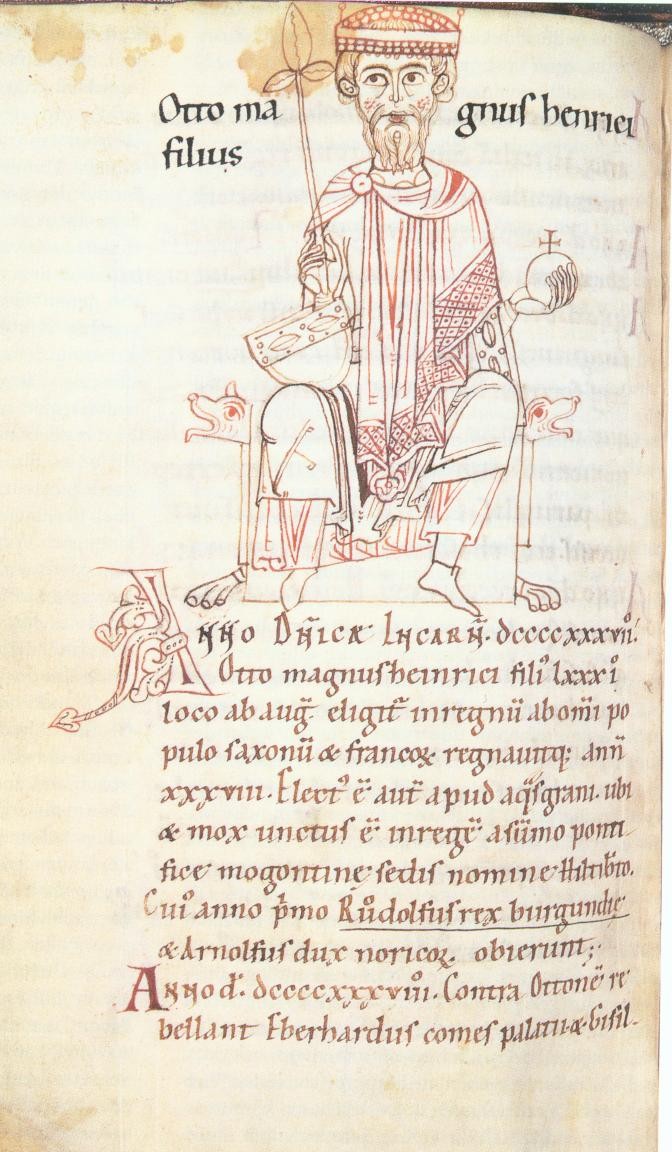 Otto ma gnus henrici
filius
Anno Dn̄icæ Incarn̄. dccccxxxvii.
Otto magnus heinrici fili⁹ lxxxi᷎
loco ab aug̅. eligit᷑ in regnū ab om̄i po
pulo saxonū & francoꝝ regnauitq; ann̄
xxxviii. Elect⁹ ē aut̄ apud aq̄sgrani. ubi
& mox unctus ē in regē a sūmo ponti
fice mogontine sedis nomine Hiltib̄to.
Cui⁹ anno p̄mo Ruͦdolfus rex burgundie
& Arnolfus dux noricoꝝ obierunt;
Anno d̄. dccccxxxviii. Contra Ottonē re
bellant Eberhardus comes palatii &